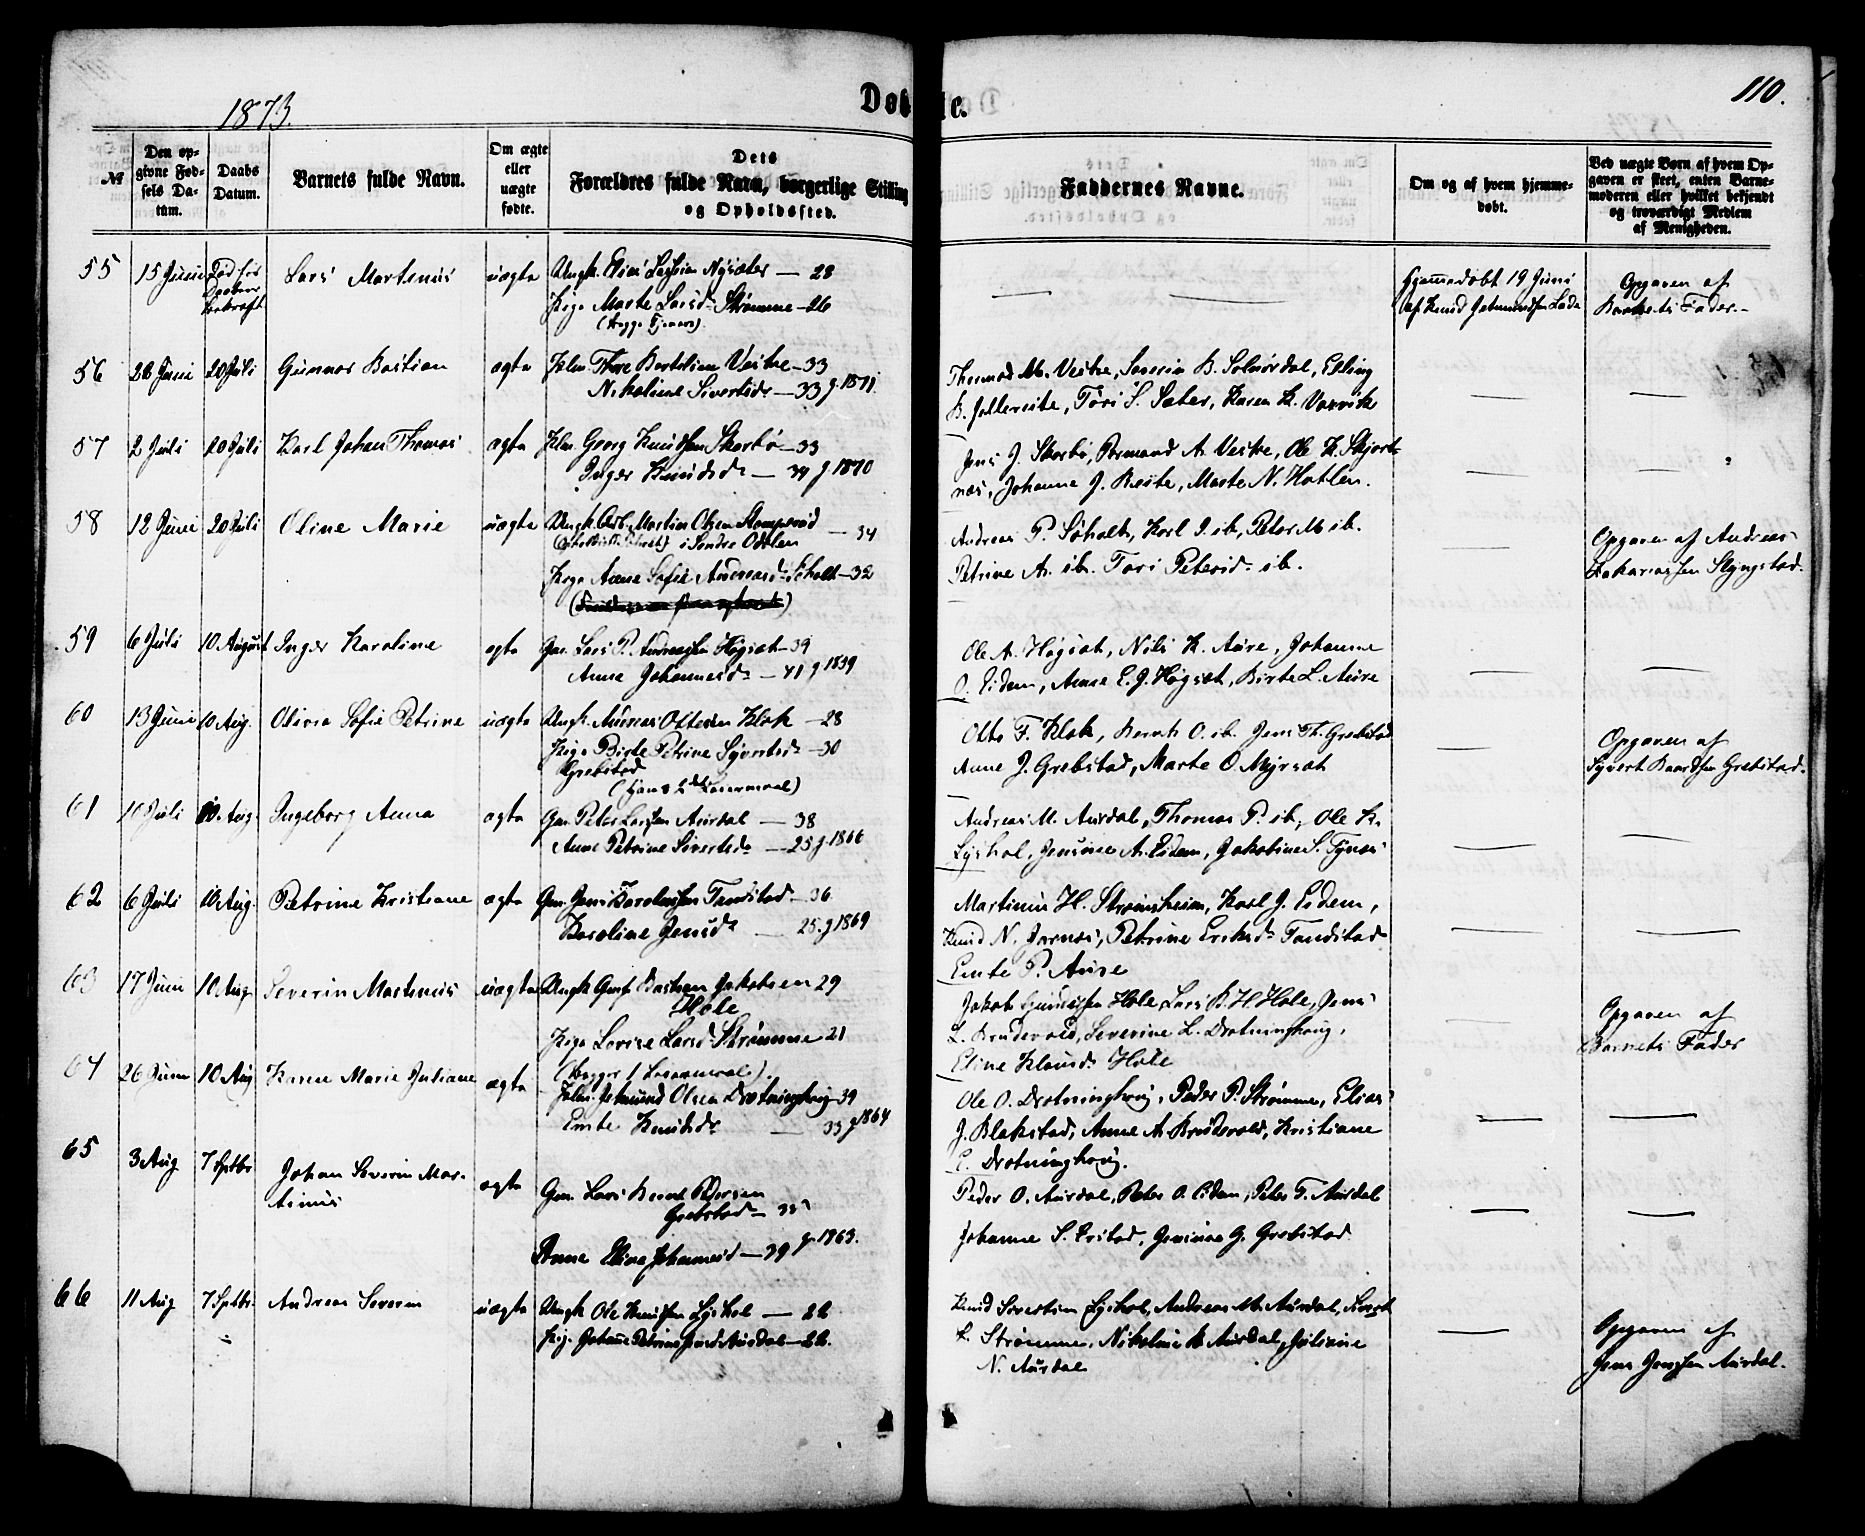 1873.
Døbte.
110.
№
Den opgivne Fødsels Datum.
Daabs Datum.
Barnets fulde Navn.
Om ægte eller uægte fødte.
Dets Forældres fulde Navn, borgerlige Stilling og Opholdssted.
Faddernes Navne.
Om og af hvem hjemmedøbt.
Ved uægte Børn af hvem Opgaven er skeet, enten Barnemoderen eller hvilket bekjendt og troværdigt Medlem af Menigheden.
55 15 Juni Lars Martinus uægte Ungk. Elias Nysæter — 28
Pige Marte Larsd. Strømme — 26
Hjemmedøbt 19 Juni
af Knud Lade
Opgaven af
Barnets Fader.
56 26 Juni 20 Juli Gunnar Bastian ægte Thore Bertelsen Vestre — 33
Nikoline Sivertsd. — 33 g. 1871.
Thormod M. Vestre, Severin B. Solnørdal, Elling
K. Jellereite, Tori S. Sæter, Karen K. Varvik
57 2 Juli 20 Juli Karl Johan Thomas ægte Georg Knudsen Skorbø — 33
Inger Knudsd. — 34 g 1870
Jens J. Skorbø, A. Vestre, Ole K. Skjort-
næs, Johanne J. Reite, Marte N. Hatlen.
58 12 Juni 20 Juli Oline Marie uægte Ungk. Martin Olsen — 34
i Søndre Odalen
Pige Anne Sofie Andreasd. Søholt — 32
Andreas P. Søholt, Karl I. ib, Peter M. ib.
Petrine A. ib. Tori Petersd. ib.
Opgaven af Andreas
Zakariassen Slyngstad.
59 6 Juli 10 August Inger Karoline ægte Gm. Lars P. Andreassen Høgset — 39
Anne Johannesd. — 41 g 1859
Ole A. Høgset, Nils K. Aure, Johanne
O. Eidem, Anne E. J. Høgset, Birte L. Aure
60 13 Juni 10 Aug. Olivia Sofie Petrine uægte Ungk. Ottesen Klok — 28
Pige Birte Petrine Syvertsd. — 30
Grebstad
(hans 2det Leiermaal)
Otto F. Klok, Bernt O. ib. Jens Th. Grebstad
Anne J. Grebstad, Marte O. Myrset
Opgaven af
Syvert Knudsen Grebstad.
61 10 Juli 10. Aug. Ingeborg Anna ægte Gm. Peter Larssen Aursdal — 38
Anne Petrine Sivertsd. — 25 g. 1866
Andreas M. Aursdal, Thomas P. ib, Ole K.
Lyshol, Jensine A. Eidem, Jakobine S. Tynes
62 6 Juli 10 Aug. Petrine Kristiane ægte Gm. Jens Karolussen Tandstad — 36
Karoline Jensd. — 25. g 1869
Martinus H. Strømsheim, Karl J. Eidem,
Knud N. Jarnes, Petrine Eriksd. Tandstad
Emte P. Aure
63 17 Juni 10 Aug. Severin Martinus uægte Ungk. Bastian Jakobsen 29
Hole
Pige Lovise Larsd. Strømme 21
(begges 1 Leiermaal).
Jakob Gundersen Hole, Lars B. H. Hole, Jens
L. Brudevold, Severine L. Drotninghoug,
Eline Klausd. Hole
Opgaven af
Barnets Fader
64 26 Juni 10 Aug Karen Marie Juliane ægte Jetmund Olsen Drotninghoug 39
Emte Knudsd. — 33 g 1864
Ole O. Drotninghoug, Peder P. Strømme, Elias
J. Blakstad, Anne A. Brudevold, Kristiane
E. Drotninghoug.
65 3 Aug 7 Septbr Johan Severin Mar-
tinus ægte Gm. Lars Bernt Pedersen
Grebstad — 35
Anne Eline Johannesd — 39 g 1863.
Peder O. Aursdal, Peter O. Eidem, Peter T. Aursdal
Johanne S. Erstad, Jensine G. Grebstad
66 11 Aug 7 Septbr. Andreas Severin uægte Ungk Ole Knudsen Lyshol — 22
Pige Johanne Petrine Jensd Aursdal — 22.
Knud Sivertsen Lyshol, Andreas M. Aursdal, Sivert
L. Strømme, Nikoline A. Aursdal, Juliane
N. Aursdal
Opgaven af
Jens Jenssen Aursdal.